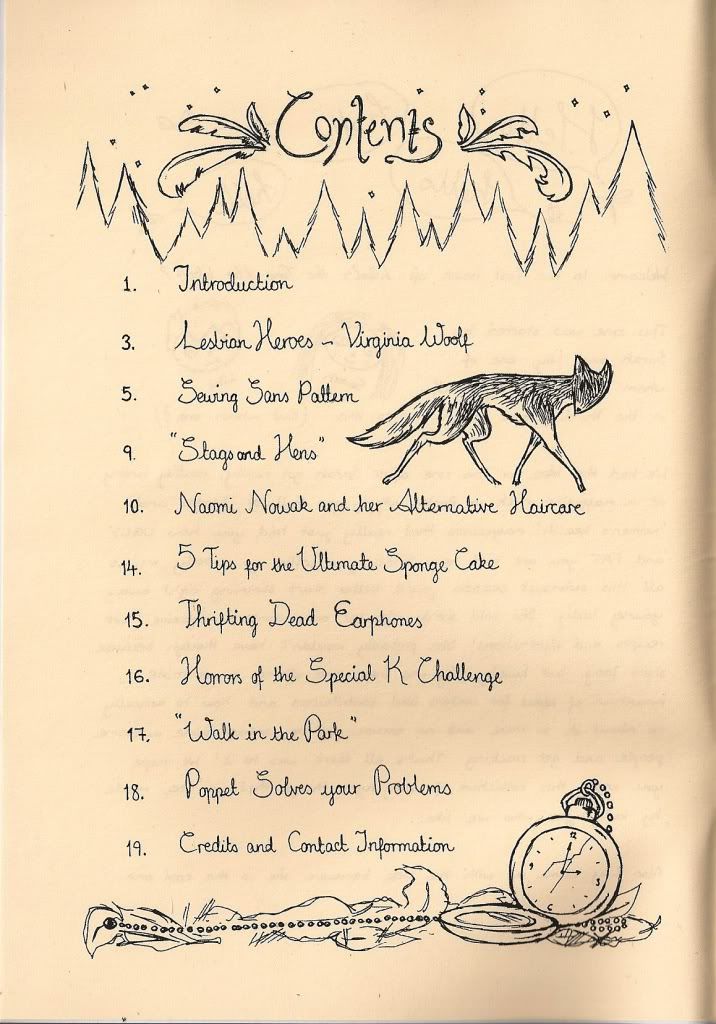 Contents
1. Introduction
3. Lesbian Heroes - Virginia Woolf
5. Sewing Sans Pattern
9. "Stags and Hens"
10. Naomi Nowak and her Alternative Haircare
14. 5 Tips for the Ultimate Sponge Cake
15. Thrifting Dead Earphones
16. Horrors of the Special K Challenge
17. "Walk in the Park"
18. Poppet Solves your Problems
19. Credits and Contact Information